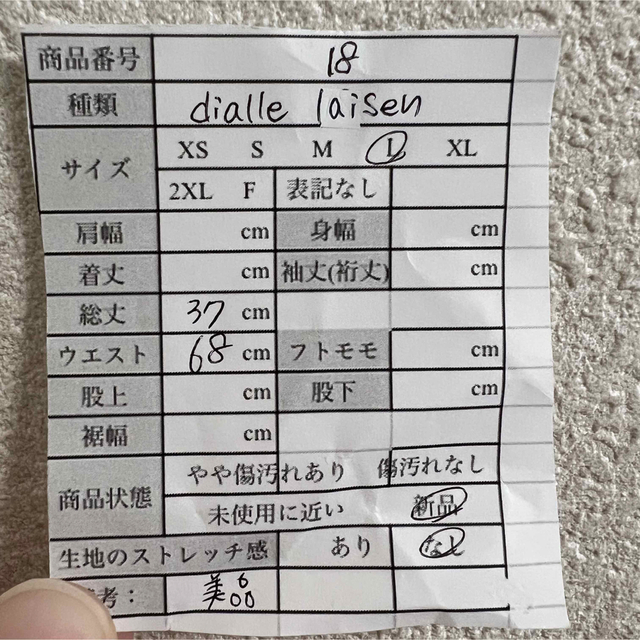 商品番号 18
種類 dialle laisen
サイズ XS S M L XL
2XL F 表記なし
肩幅 cm 身幅 cm
着丈 cm 袖丈(裄丈) cm
総丈 37 cm
ウエスト 68 cm フトモモ cm
股上 cm 股下 cm
裾幅 cm
やや傷汚れあり 傷汚れなし
商品状態
未使用に近い 新品
生地のストレッチ感 あり なし
考： 美品